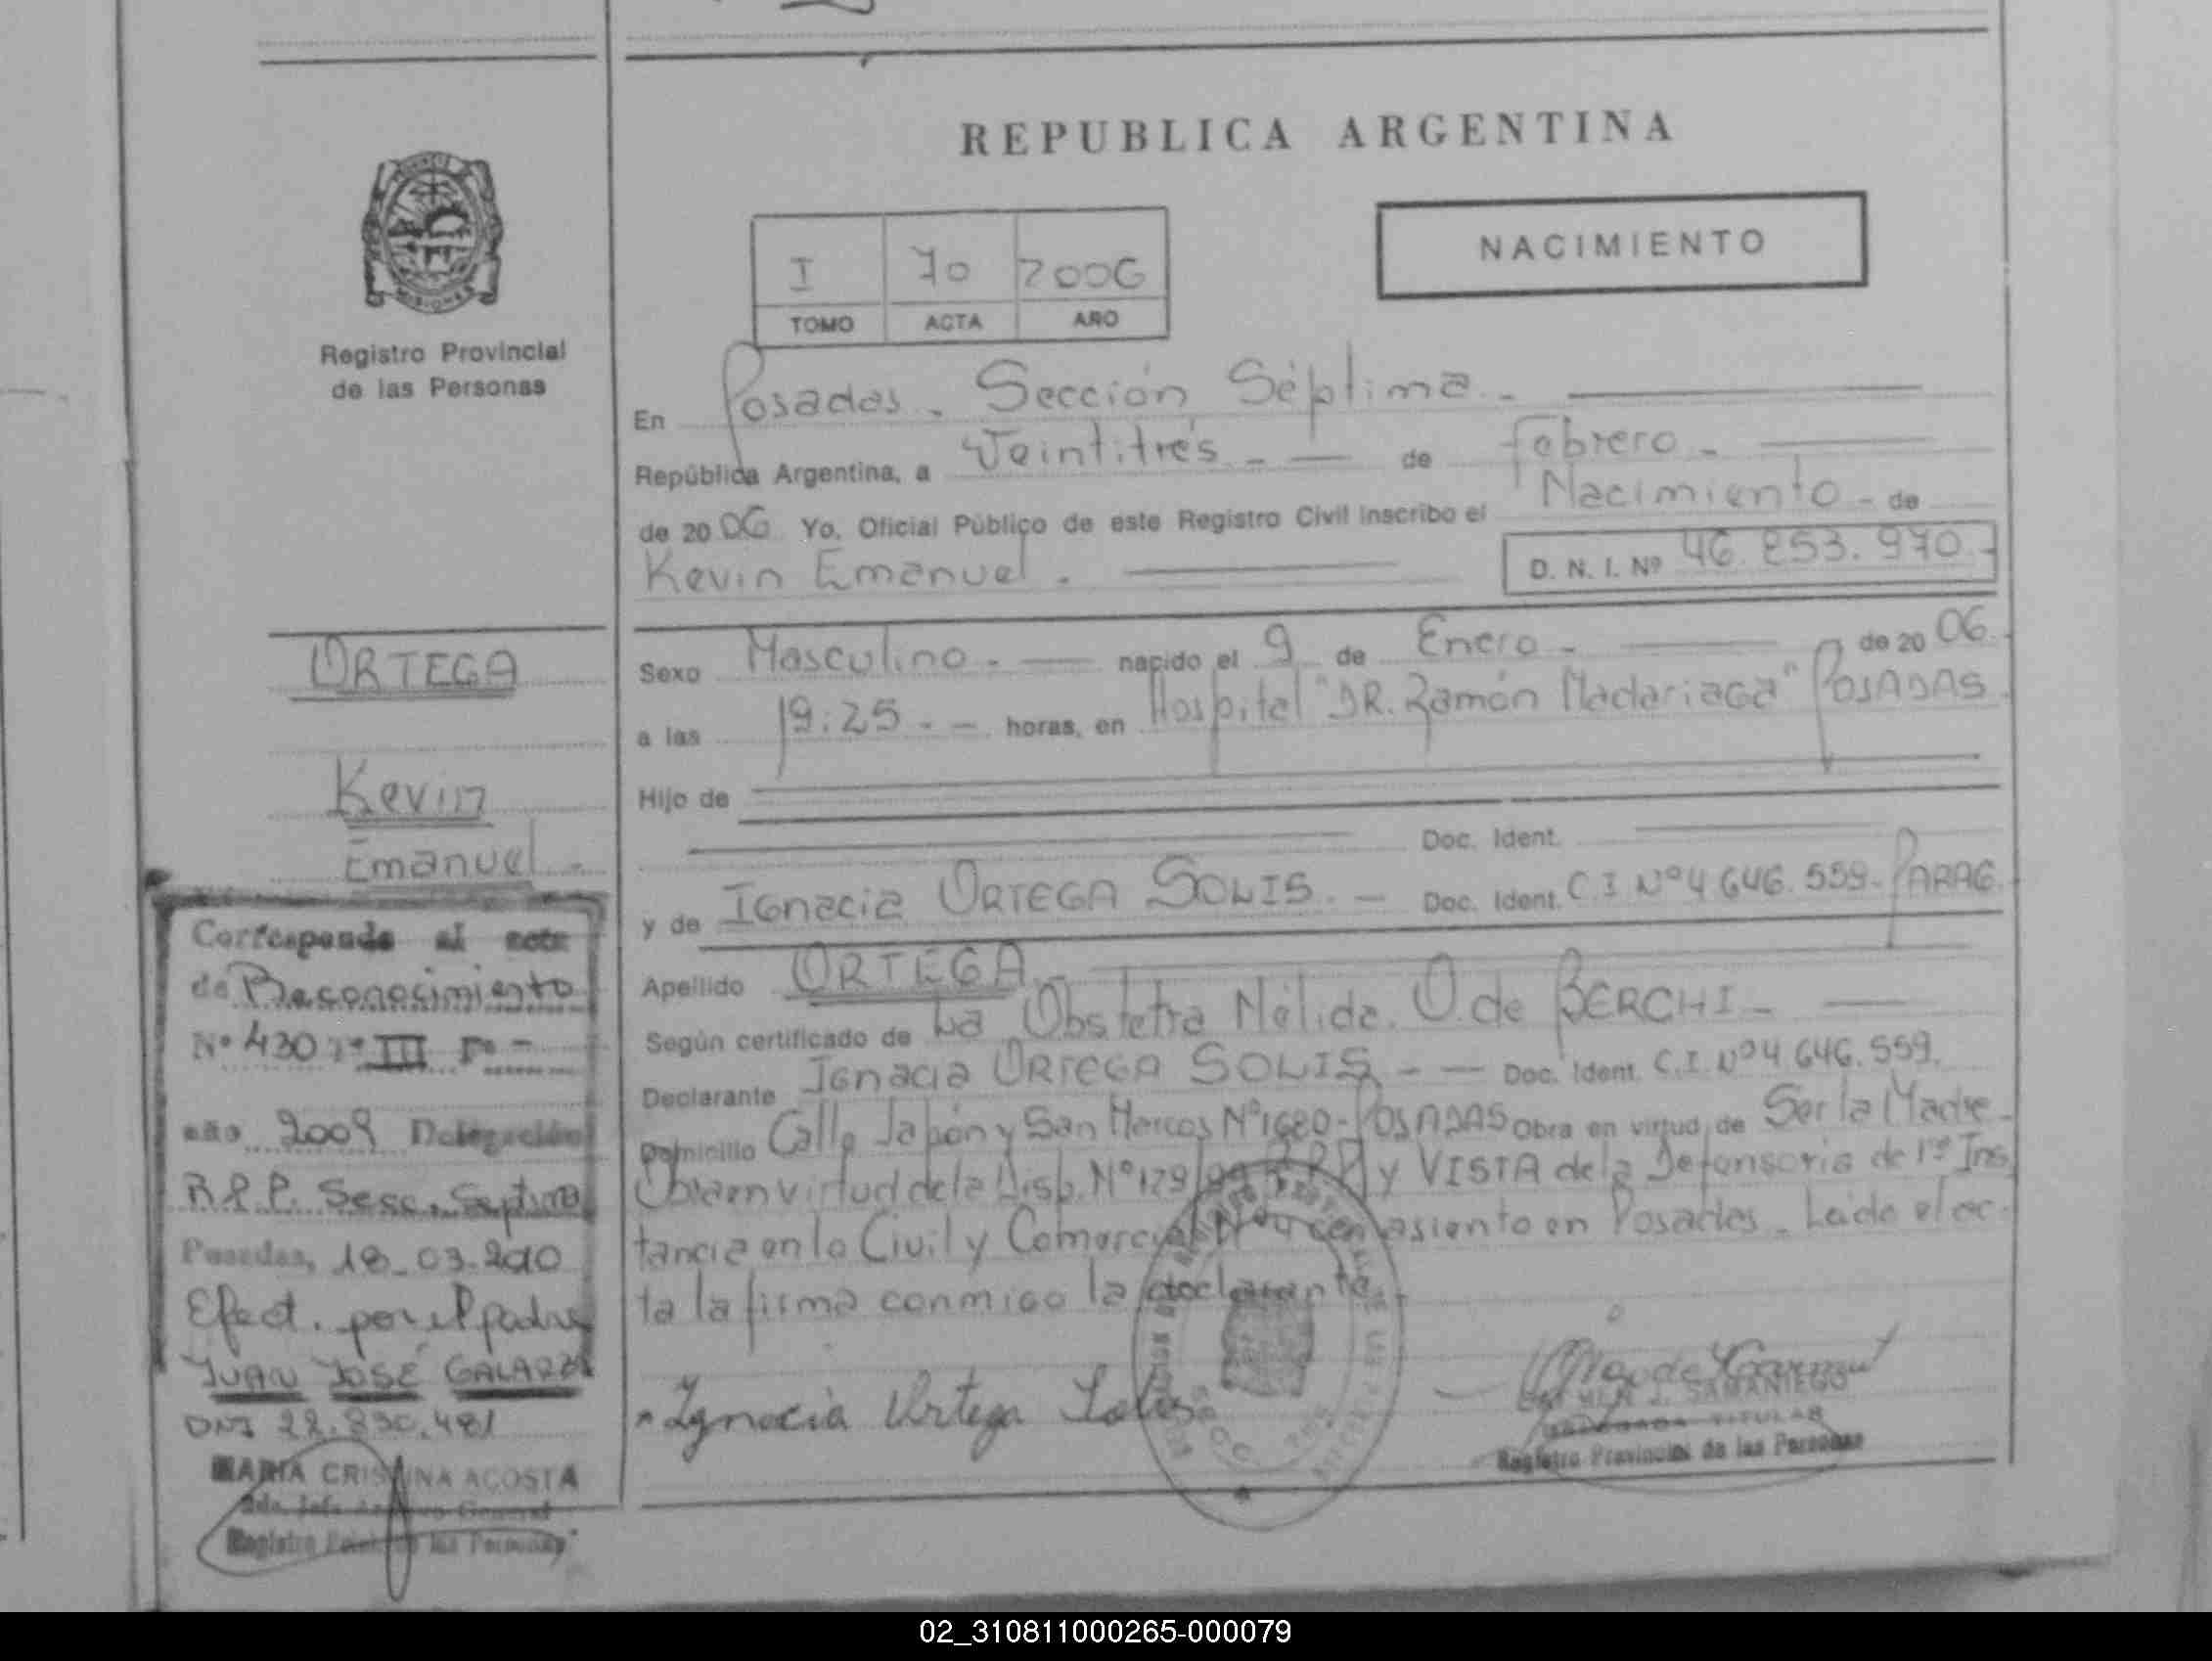 REPUBLICA ARGENTINA
NACIMIENTO
I 70 2006
TOMO ACTA AÑO
MISIONES
Registro Provincial
de las Personas
En Posadas. Sección Séptima.
República Argentina, a Veintitrés. de febrero.
de 2006 Yo, Oficial Público de este Registro Civil inscribo el Nacimiento - de
Kevin Emanuel.
D. N. I. Nº 46.253.970.-
Sexo Masculino. nacido el 9 de Enero. de 2006.
a las 19:25.- horas, en Hospital "DR. Ramón Madariaga" POSADAS
Hijo de
Doc. Ident.
y de Ignacia ORTEGA SOLIS. - Doc. Ident. C.I. Nº 4.646.559-PARAG.
Apellido ORTEGA.
Según certificado de La Obstetra Nélida. O. de BERCHI-
Declarante Ignacia ORTEGA SOLIS - Doc. Ident. C.I. Nº 4.646.559.
Domicilio Calle Japón y San Marcos Nº 1680-POSADAS Obra en virtud de Ser la Madre-
Obra en virtud de la Disp. Nº 129/99 y VISTA de la Defensoría de 1ra Ins
tancia en lo Civil y Comercial Nº 4 con asiento en Posadas. Leida el ac-
ta la firma conmigo la declarante.
Ignacia Ortega Solis
SAMANIEGO
TITULAR
Registro Provincial de las Personas
ORTEGA
Kevin
Emanuel.-
Corresponde al acta
de Reconocimiento
Nº 430 Tº III Fº -
año 2009 Delegación
R.P.P. Secc. Septima
Posadas, 18-03-2010
Efect. por el padre
JUAN JOSÉ GALARZA
DNI 22.830.481
MARIA CRISTINA ACOSTA
Registro de las Personas
02_310811000265-000079